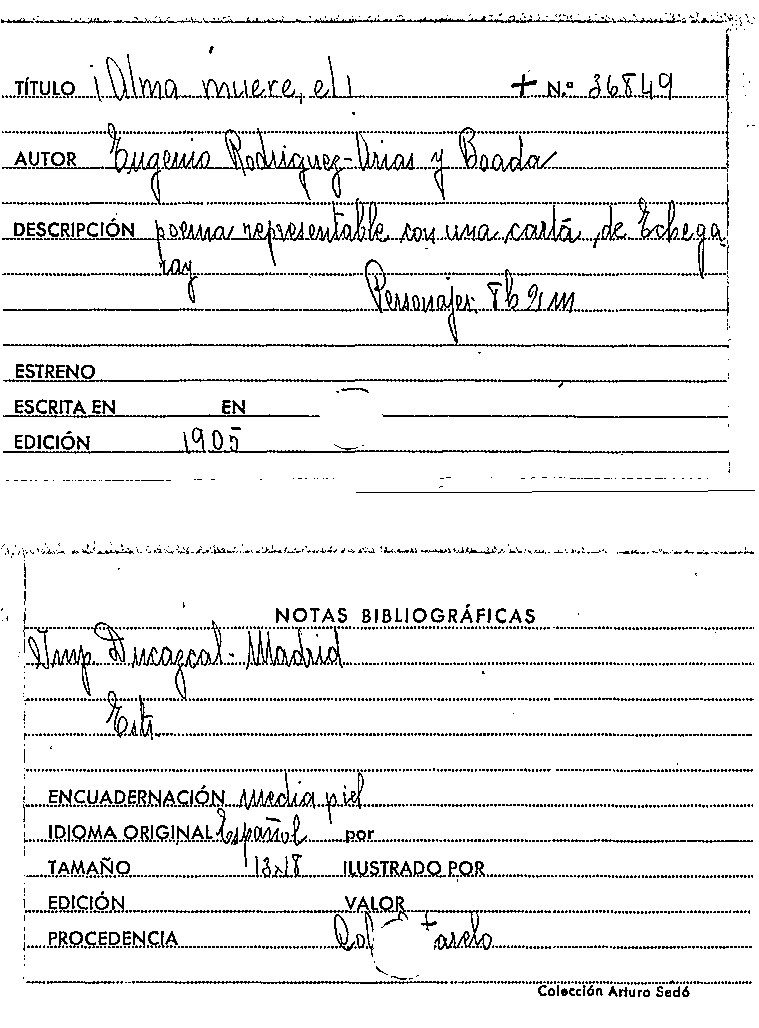 TÍTULO ¡Alma muere, el! + N.º 36849
AUTOR Eugenio Rodriguez-Arias y Boada
DESCRIPCIÓN poema representable con una carta de Echega
ray
Personajes 8h 2m
ESTRENO
ESCRITA EN EN
EDICIÓN 1905
NOTAS BIBLIOGRÁFICAS
Imp. Ducazcal - Madrid
Estr.
ENCUADERNACIÓN media piel
IDIOMA ORIGINAL Español por
TAMAÑO 13x18 ILUSTRADO POR
EDICIÓN VALOR
PROCEDENCIA Col
Colección Arturo Sedó